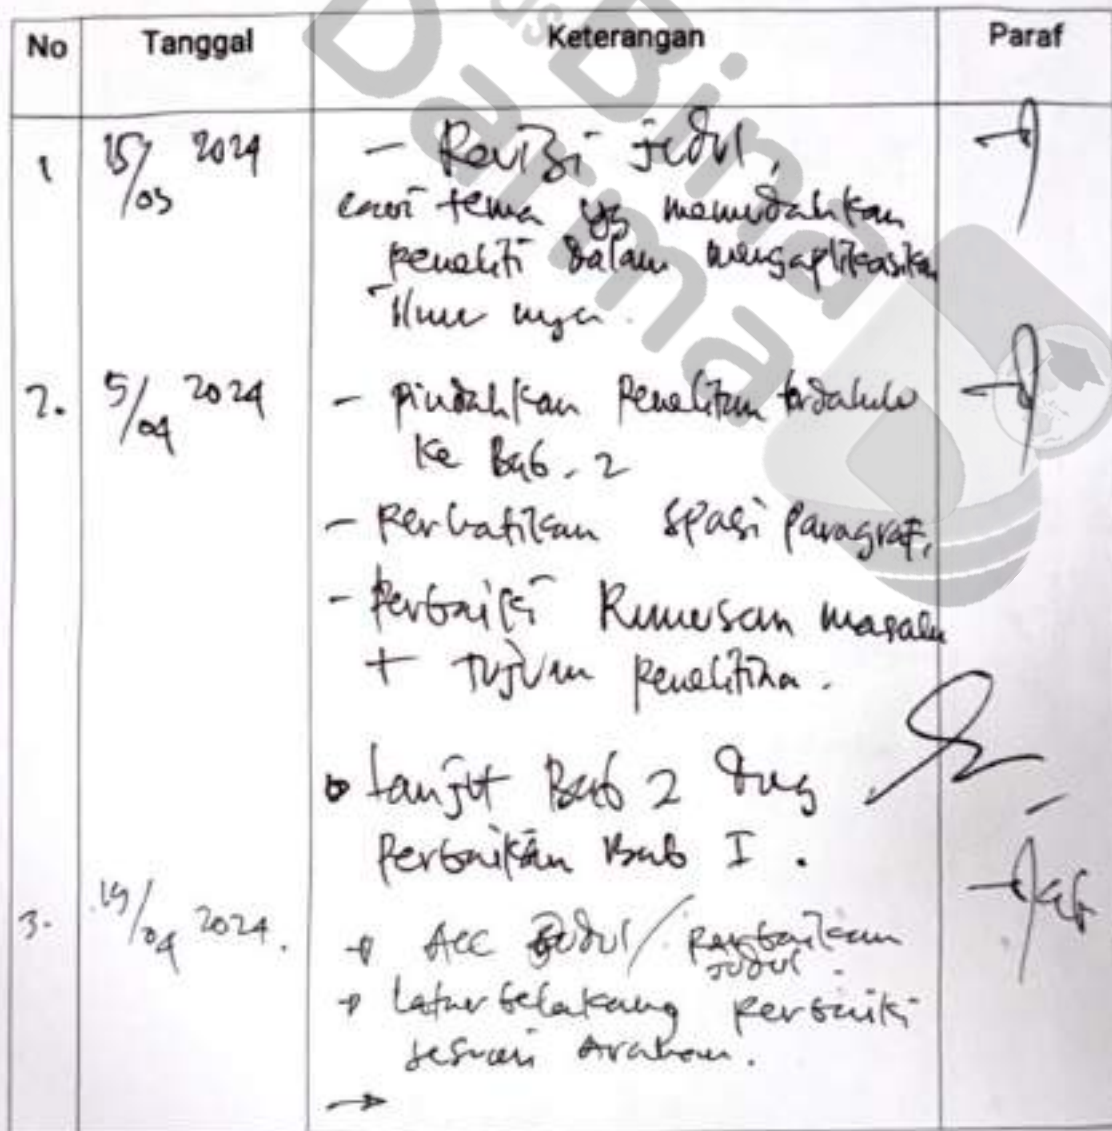 No Tanggal Keterangan Paraf
Bina
Darma
1 15/03 2024 - Revisi judul,
cari tema yg memudahkan
peneliti dalam mengaplikasikan
ilmu nya.
2. 5/04 2024 - pindahkan Penelitian terdahulu
ke Bab. 2
- Perhatikan spasi paragraf,
- Perbaiki Rumusan masalah
+ Tujuan penelitian.
Lanjut Bab 2 dng
Perbaikan Bab I.
3. 19/04 2024. Acc Judul / perbaikan
judul.
Latar belakang perbaiki
sesuai Arahan.
→